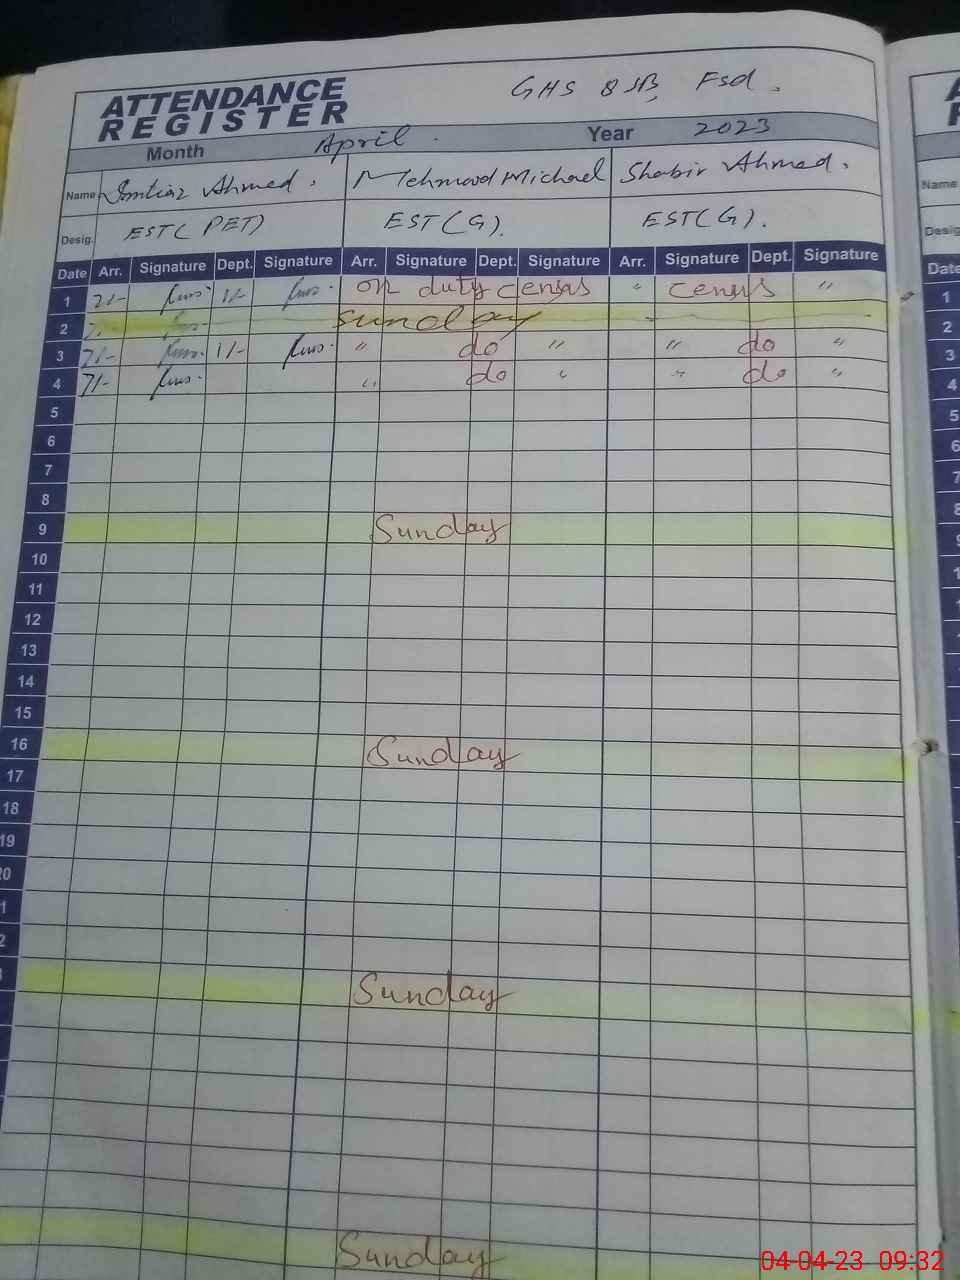 ATTENDANCE
REGISTER
GHS 8 JB, Fsd.
Month April. Year 2023
Name Imtiaz Ahmed. Mehmood Michael Shabir Ahmed.
Desig. EST(PET) EST(G). EST(G).
Date Arr. Signature Dept. Signature Arr. Signature Dept. Signature Arr. Signature Dept. Signature
1 7/- 1/- on duty census " census "
2 Sunday
3 7/- 1/- " do " " do "
4 7/- " do " " do "
5
6
7
8
9 Sunday
10
11
12
13
14
15
16 Sunday
17
18
19
20
Sunday
Sunday
Name
Desig
Date
1
2
3
4
5
6
7
04-04-23 09:32